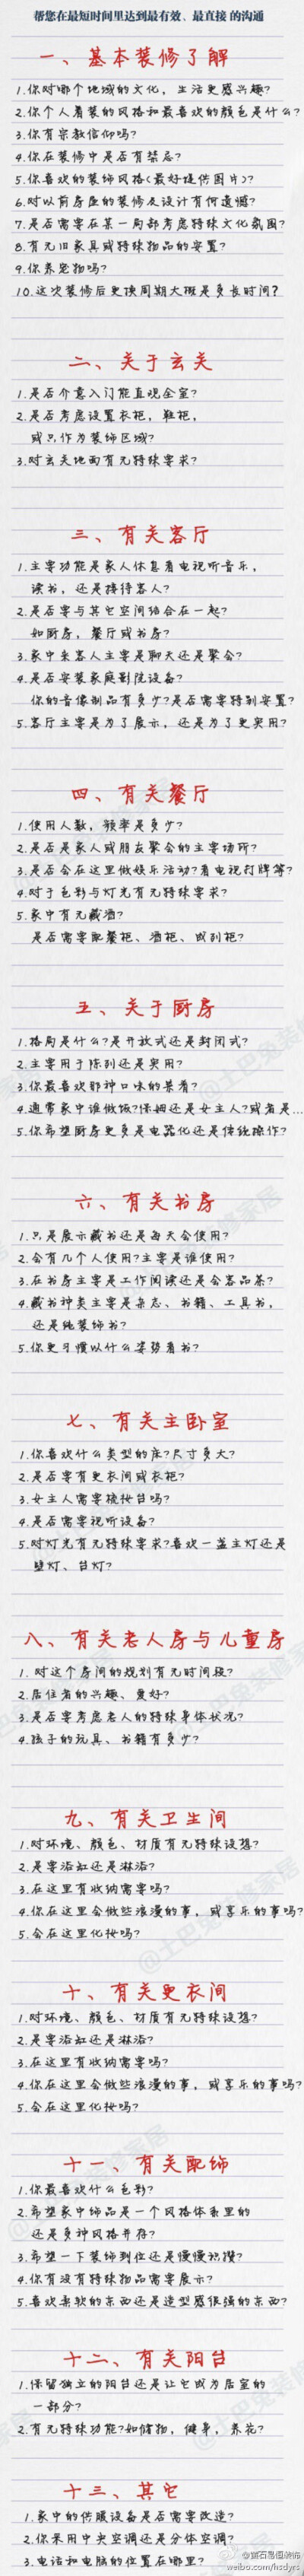 帮您在最短时间里达到最有效、最直接 的沟通
一、基本装修了解
1.你对哪个地域的文化，生活更感兴趣?
2.你个人着装的风格和最喜欢的颜色是什么?
3.你有宗教信仰吗?
4.你在装修中是否有禁忌?
5.你喜欢的装饰风格(最好提供图片)?
6.对以前房屋的装修及设计有何遗憾?
7.是否需要在某一局部考虑特殊文化氛围?
8.有无旧家具或特殊物品的安置?
9.你养宠物吗?
10.这次装修后更换周期大概是多长时间?
二、关于玄关
1.是否介意入门能直观全室?
2.是否考虑设置衣柜，鞋柜，
或只作为装饰区域?
3.对玄关地面有无特殊要求?
三、有关客厅
1.主要功能是家人休息看电视听音乐，
读书，还是接待客人?
2.是否要与其它空间结合在一起?
如厨房，餐厅或书房?
3.家中来客人主要是聊天还是聚会?
4.是否安装家庭影院设备?
你的音像制品有多少?是否需要特别安置?
5.客厅主要是为了展示，还是为了更实用?
四、有关餐厅
1.使用人数，频率是多少?
2.是否是家人或朋友聚会的主要场所?
3.是否会在这里做娱乐活动?看电视打牌等?
4.对于色彩与灯光有无特殊要求?
5.家中有无藏酒?
是否需要配餐柜、酒柜、或别柜?
五、关于厨房
1.格局是什么?是开放式还是封闭式?
2.主要用于陈列还是实用?
3.你最喜欢那种口味的菜肴?
4.通常家中谁做饭?保姆还是女主人?或者是...
5.你希望厨房更多是电器化还是传统操作?
六、有关书房
1.只是展示藏书还是每天会使用?
2.会有几个人使用?主要是谁使用?
3.在书房主要是工作阅读还是会客品茶?
4.藏书种类主要是杂志、书籍、工具书，
还是纯装饰书?
5.你更习惯以什么姿势看书?
七、有关主卧室
1.你喜欢什么类型的床?尺寸多大?
2.是否要有更衣间或衣柜?
3.女主人需要梳妆台吗?
4.是否需要视听设备?
5.对灯光有无特殊要求?喜欢一盏主灯还是
壁灯、台灯?
八、有关老人房与儿童房
1. 对这个房间的规划有无时间段?
2.居住者的兴趣、爱好?
3.是否要考虑老人的特殊身体状况?
4.孩子的玩具、书籍有多少?
九、有关卫生间
1.对环境、颜色、材质有无特殊设想?
2.是要浴缸还是淋浴?
3.在这里有收纳需要吗?
4.你在这里会做些浪漫的事，或享乐的事吗?
5.会在这里化妆吗?
十、有关更衣间
1.对环境、颜色、材质有无特殊设想?
2.是要浴缸还是淋浴?
3.在这里有收纳需要吗?
4.你在这里会做些浪漫的事，或享乐的事吗?
5.会在这里化妆吗?
十一、有关配饰
1.你最喜欢什么色彩?
2.希望家中饰品是一个风格体系里的
还是多种风格并存?
3.希望一下装饰到位还是慢慢积攒?
4.你有没有特殊物品需要展示?
5.喜欢柔软的东西还是造型感很强的东西?
十二、有关阳台
1.保留独立的阳台还是让它成为居室的
一部分?
2.有无特殊功能?如储物，健身，养花?
十三、其它
1.家中的供暖设备是否需要改造?
2.你采用中央空调还是分体空调?
3.电话和电脑的位置在哪里?
@土巴兔装修家居
weibo.com/hsdyrs